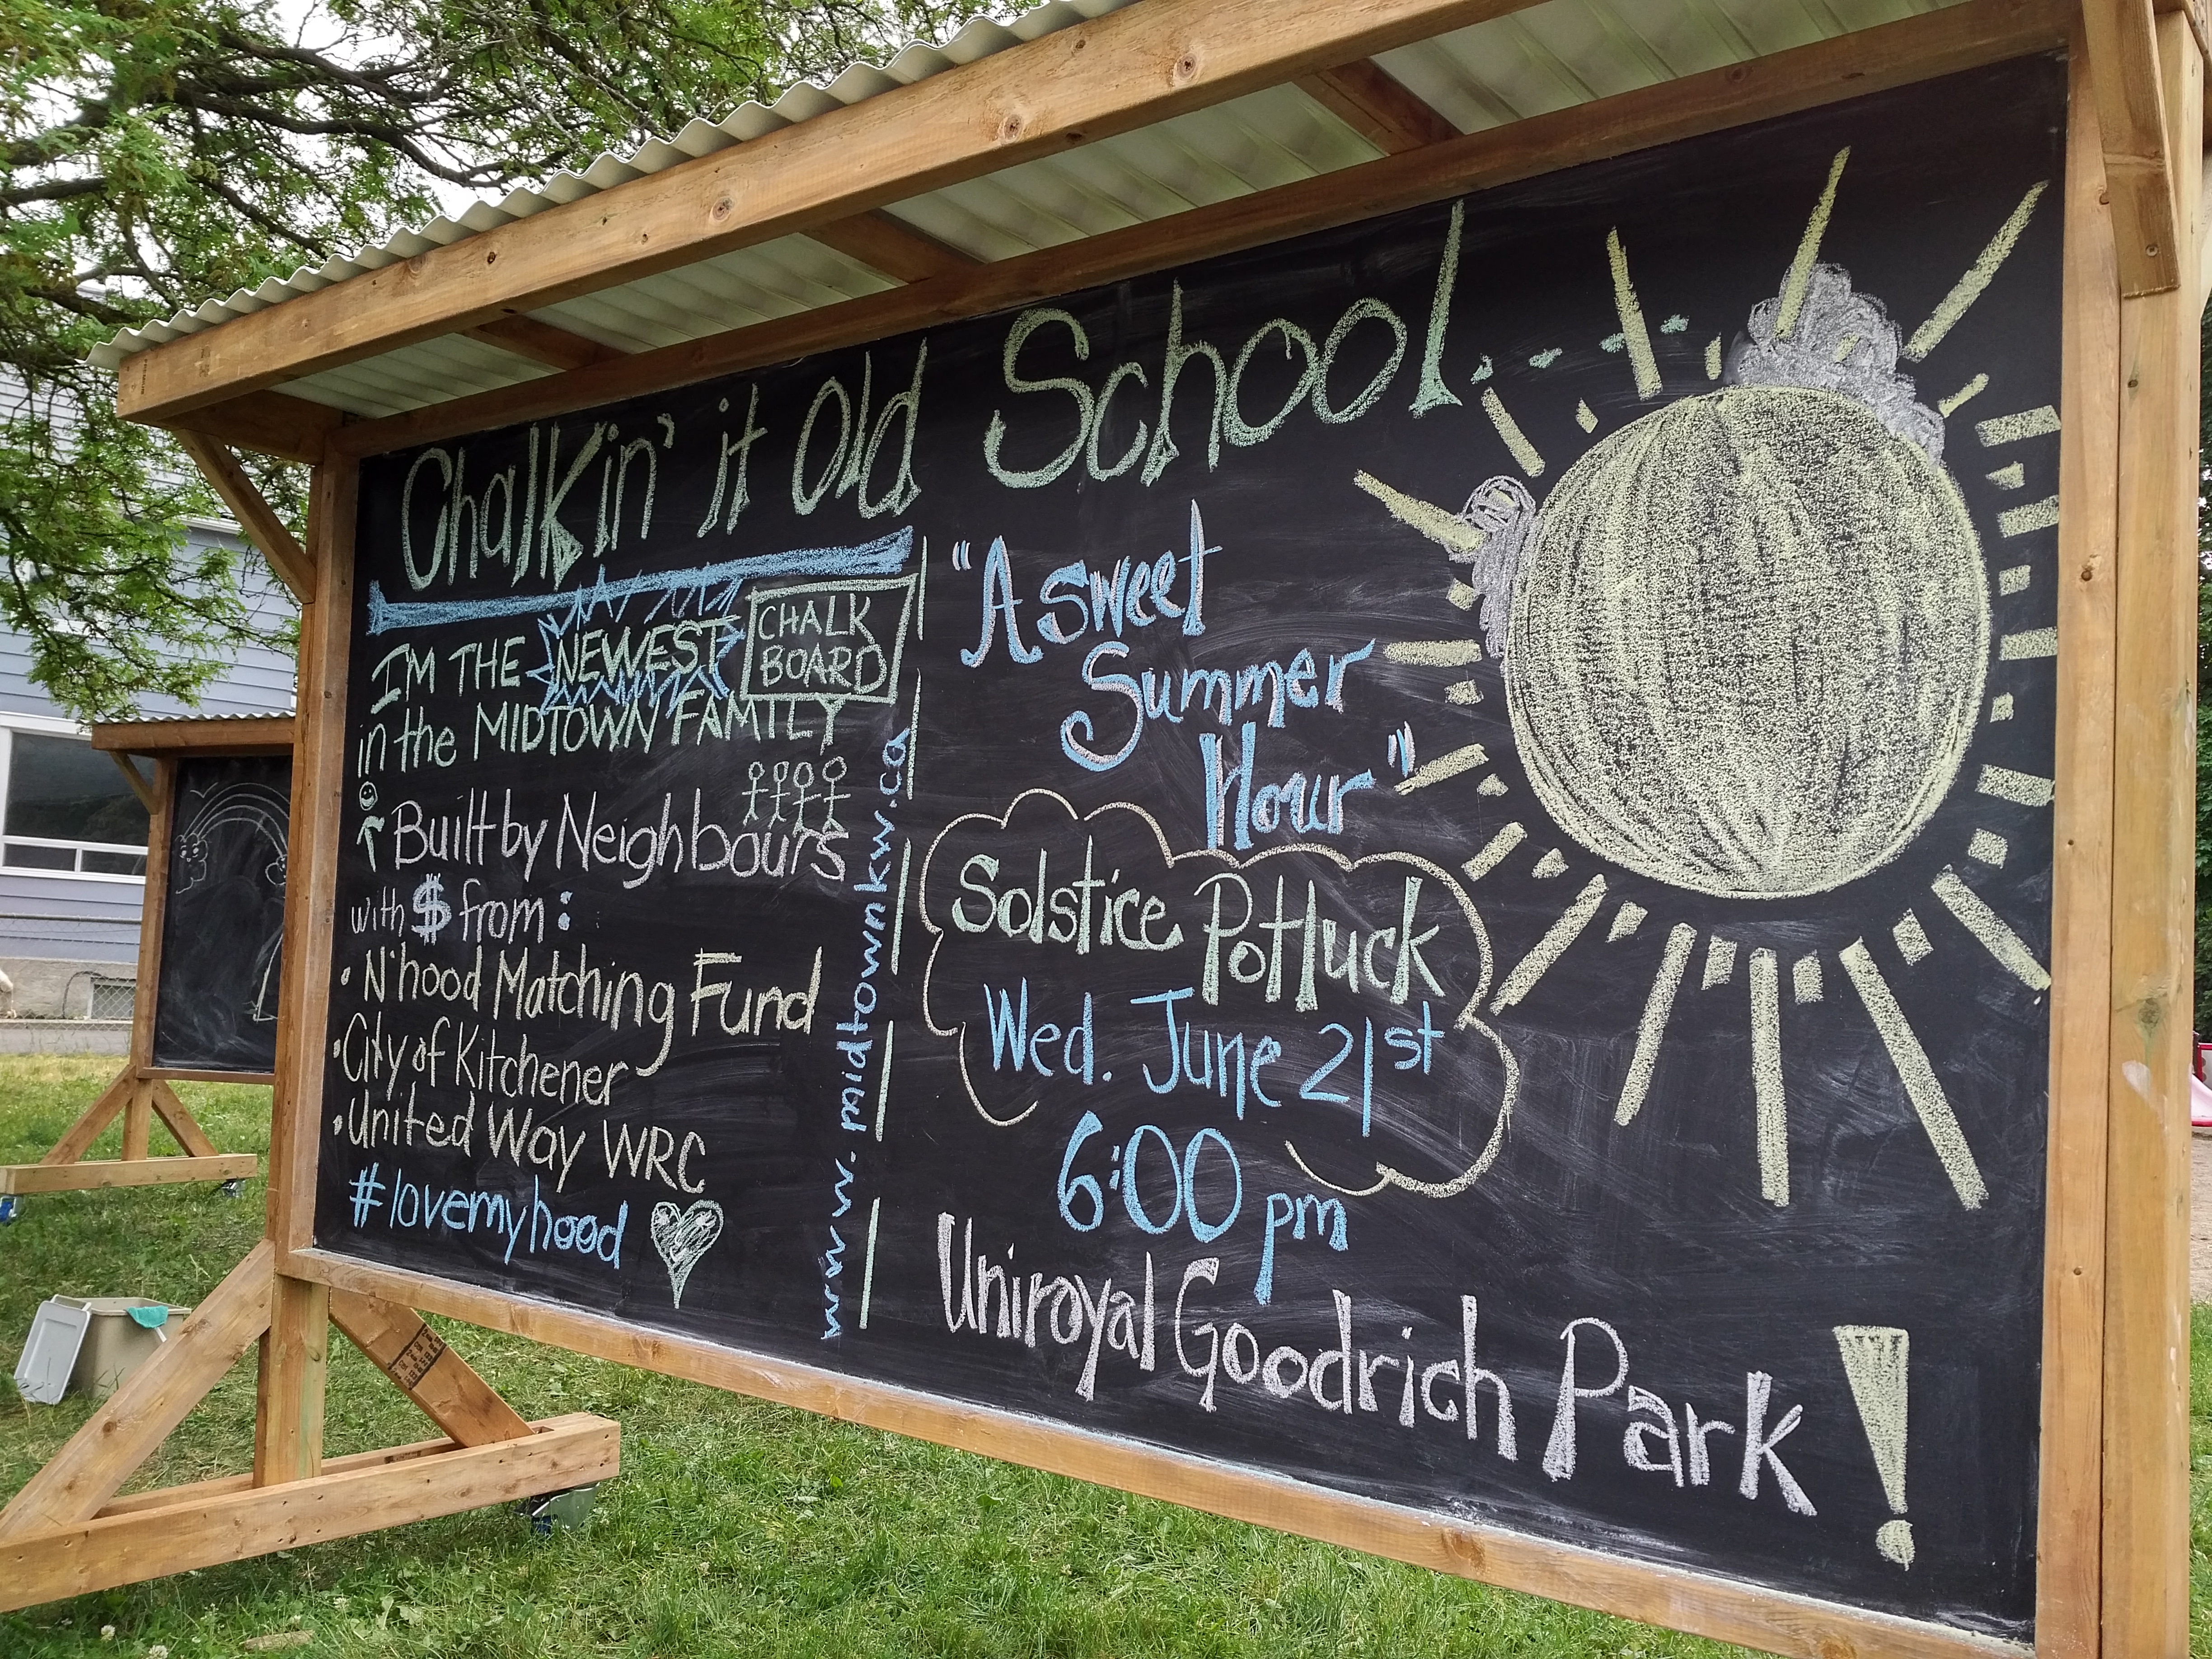 Chalkin' it Old School!...
I'M THE NEWEST CHALK BOARD
in the MIDTOWN FAMILY
Built by Neighbours
with $ from:
• N'hood Matching Fund
• City of Kitchener
• United Way WRC
#lovemyhood
www.midtownkw.ca
"A sweet
Summer
Hour"
Solstice Potluck
Wed. June 21st
6:00 pm
Uniroyal Goodrich Park!